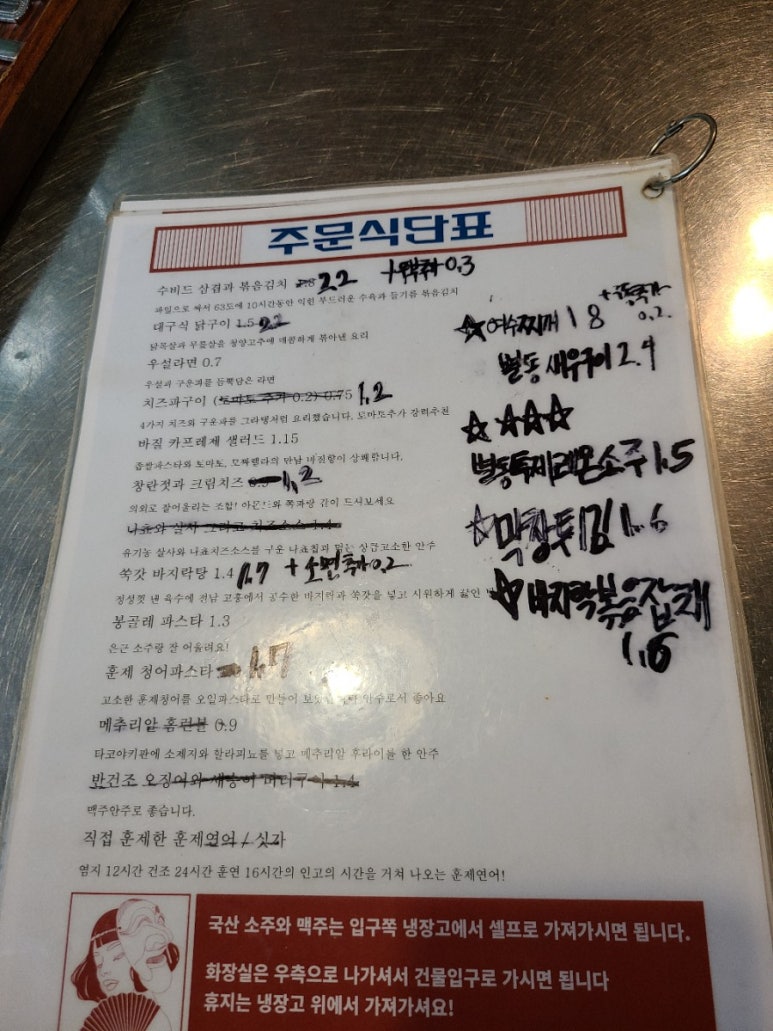 주문식단표
수비드 삼겹과 볶음김치 2.2 + 0.3
파밀으로 싸서 63도에 10시간동안 익힌 부드러운 수육과 들기름 볶음김치
대구식 닭구이 1.5 2.2
닭목살과 무릎살을 청양고추에 매콤하게 볶아낸 요리
우설라면 0.7
우설과 구운파를 듬뿍담은 라면
치즈파구이 (토마토 추가 0.2) 0.75 1.2
4가지 치즈와 구운파를 그라탱처럼 요리했습니다. 토마토추가 강력추천
바질 카프레제 샐러드 1.15
숏파스타와 토마토, 모짜렐라의 만남 바질향이 상쾌합니다.
창란젓과 크림치즈 1.2
의외로 잘어울리는 조합! 아몬드와 쪽파랑 같이 드셔보세요
나쵸와 살사 그리고 치즈소스 1.4
유기농 살사와 나쵸치즈소스를 구운 나쵸칩과 먹는 상급고소한 안주
쑥갓 바지락탕 1.4 1.7 + 소면추가 0.2
정성껏 낸 육수에 전남 고흥에서 공수한 바지락과 쑥갓을 넣고 시원하게 끓인
봉골레 파스타 1.3
은근 소주랑 잘 어울려요!
훈제 청어파스타 1.7
고소한 훈제청어를 오일파스타로 만들어 안주로서 좋아요
메추리알 홈런볼 0.9
타코야키판에 소제지와 할라피뇨를 넣고 메추리알 후라이를 한 안주
반건조 오징어와 새송이 버터구이 1.4
맥주안주로 좋습니다.
직접 훈제한 훈제연어 / 싯가
염지 12시간 건조 24시간 훈연 16시간의 인고의 시간을 거쳐 나오는 훈제연어!
☆여수찌개 1 8 + 0.2.
별동 새우구이 2.4
☆ ☆☆☆
별동특제레몬소주 1.5
☆막창튀김 1.6
☆바지락볶음잡채
1.6
국산 소주와 맥주는 입구쪽 냉장고에서 셀프로 가져가시면 됩니다.
화장실은 우측으로 나가셔서 건물입구로 가시면 됩니다
휴지는 냉장고 위에서 가져가셔요!